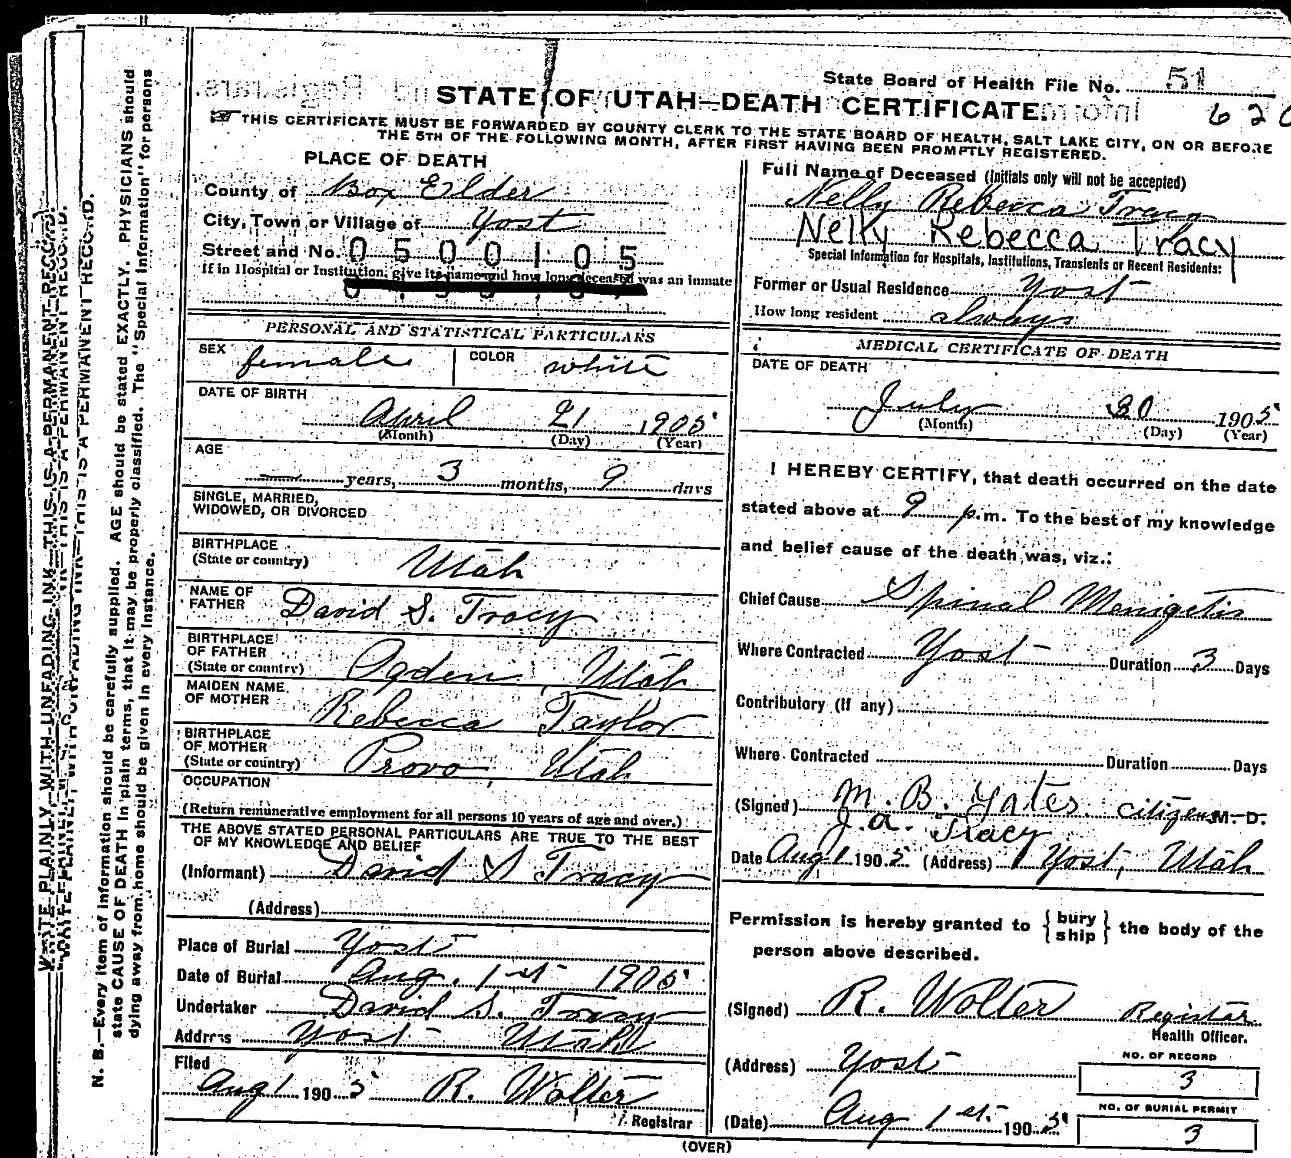 State Board of Health File No. 51
620
STATE OF UTAH—DEATH CERTIFICATE.
THIS CERTIFICATE MUST BE FORWARDED BY COUNTY CLERK TO THE STATE BOARD OF HEALTH, SALT LAKE CITY, ON OR BEFORE
THE 5TH OF THE FOLLOWING MONTH, AFTER FIRST HAVING BEEN PROMPTLY REGISTERED.
PLACE OF DEATH
County of Box Elder
City, Town or Village of Yost
Street and No. 0500105
If in Hospital or Institution, give its name and how long deceased was an inmate
PERSONAL AND STATISTICAL PARTICULARS
SEX female COLOR white
DATE OF BIRTH
April 21 1905
(Month) (Day) (Year)
AGE
— years, 3 months, 9 days
SINGLE, MARRIED,
WIDOWED, OR DIVORCED
BIRTHPLACE
(State or country) Utah
NAME OF
FATHER David S. Tracy
BIRTHPLACE
OF FATHER
(State or country) Ogden, Utah
MAIDEN NAME
OF MOTHER Rebecca Taylor
BIRTHPLACE
OF MOTHER
(State or country) Provo, Utah
OCCUPATION
(Return remunerative employment for all persons 10 years of age and over.)
THE ABOVE STATED PERSONAL PARTICULARS ARE TRUE TO THE BEST
OF MY KNOWLEDGE AND BELIEF
(Informant) David S Tracy
(Address)
Place of Burial Yost
Date of Burial Aug. 1st 1905
Undertaker David S. Tracy
Address Yost Utah
Filed
Aug 1 1905 R. Wolter
Registrar
Full Name of Deceased (Initials only will not be accepted)
Nelly Rebecca Tracy
Nelly Rebecca Tracy
Special Information for Hospitals, Institutions, Transients or Recent Residents:
Former or Usual Residence Yost
How long resident always
MEDICAL CERTIFICATE OF DEATH
DATE OF DEATH
July 30 1905
(Month) (Day) (Year)
I HEREBY CERTIFY, that death occurred on the date
stated above at 9 p.m. To the best of my knowledge
and belief cause of the death was, viz.:
Chief Cause Spinal Menigetis
Where Contracted Yost Duration 3 Days
Contributory (if any)
Where Contracted Duration Days
(Signed) M. B. Yates citizens M. D.
J. A. Tracy
Date Aug 1 1905 (Address) Yost, Utah
Permission is hereby granted to { bury ship } the body of the
person above described.
(Signed) R. Wolter Registar
Health Officer.
(Address) Yost
NO. OF RECORD
3
(Date) Aug 1st. 1905
NO. OF BURIAL PERMIT
3
(OVER)
WRITE PLAINLY, WITH UNFADING INK—THIS IS A PERMANENT RECORD.
N. B.—Every item of information should be carefully supplied. AGE should be stated EXACTLY. PHYSICIANS should
state CAUSE OF DEATH in plain terms, that it may be properly classified. The "Special Information" for persons
dying away from home should be given in every instance.